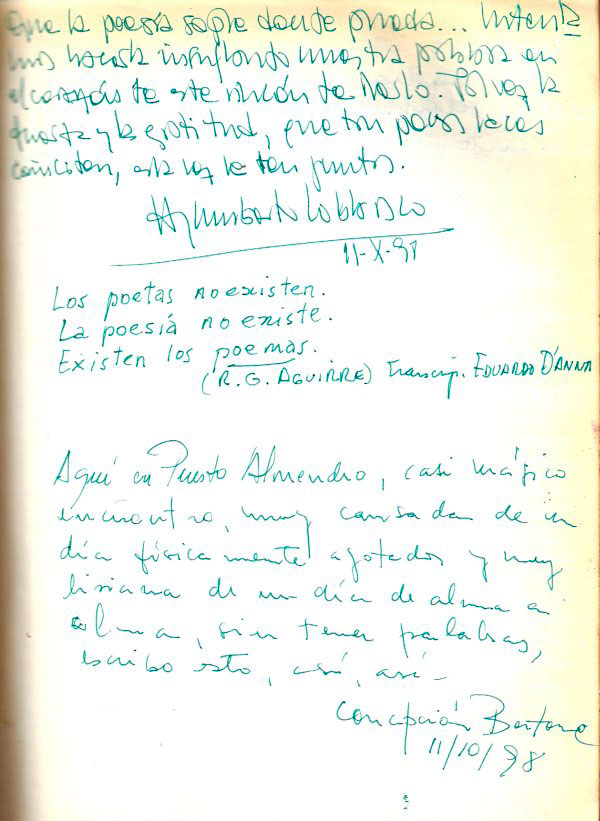 Que la poesía sople donde pueda... Intente
mos hacerla insuflando nuestra palabra en
el corazón de este rincón de Tal vez la
y la gratitud, que tan pocas veces
coinciden, esta vez le den juntos.
Humberto Lobbosco
11-X-91
Los poetas no existen.
La poesiá no existe.
Existen los poemas.
(R. G. AGUIRRE) transcrip. EDUARDO D'ANNA
Aquí en Puesto Almendro, casi mágico
encuentro, muy cansada de un
día físicamente agotador y muy
liviana de un día de alma a
alma, sin tener palabras,
escribo esto, así, así-
Concepción Bertone
11/10/98